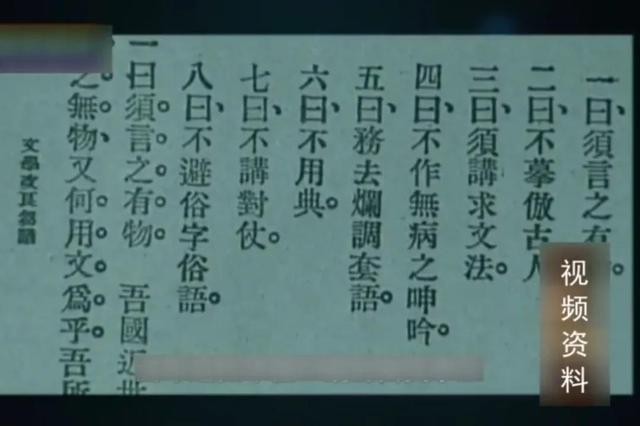 一曰須言之有
二曰不摹倣古人
三曰須講求文法。
四曰不作無病之呻吟。
五曰務去爛調套語。
六曰不用典。
七曰不講對仗。
八曰不避俗字俗語。
一曰須言之有物 吾國近世
之無物又何用文爲乎吾所
文學改良芻議
视频资料